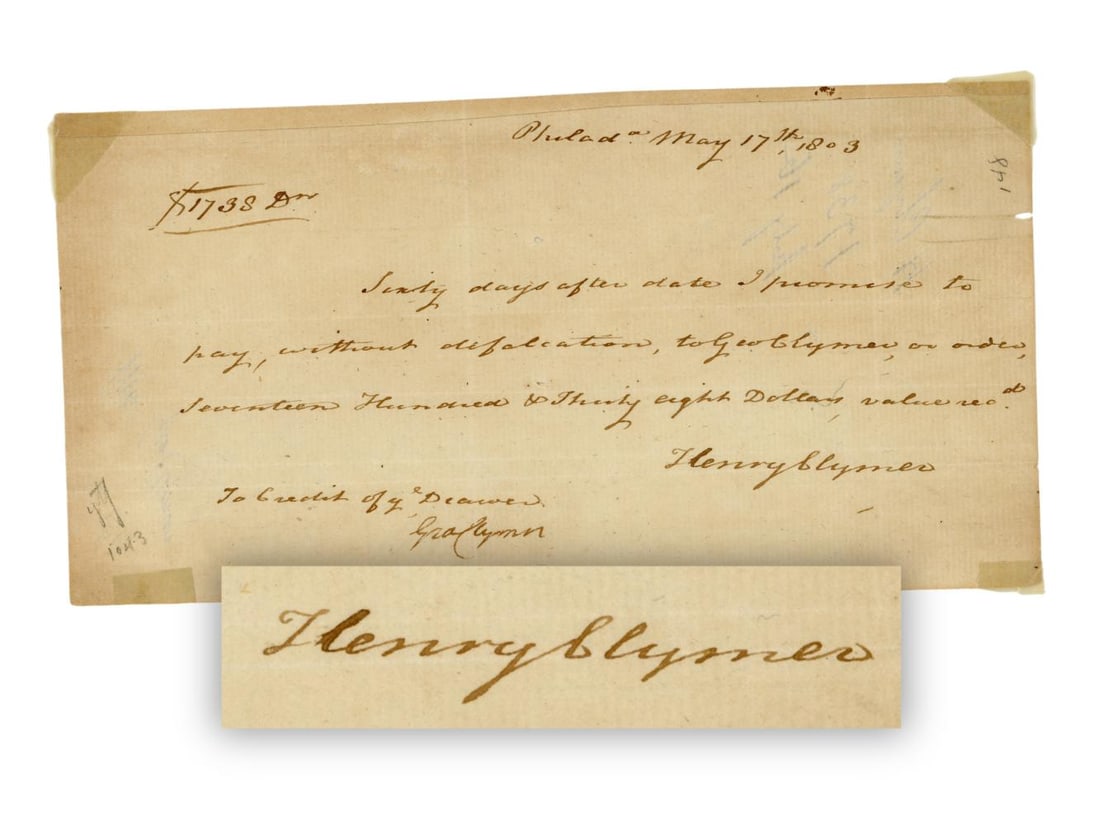 Philad.ª May 17th, 1803
148
$1738 Drs
Sixty days after date I promise to
pay, without defalcation, to Geo Clymer, or order,
Seventeen Hundred & Thirty eight Dollars value recd.
Henry Clymer
To Credit of ye Drawer.
Geo Clymer
1043
Henry Clymer